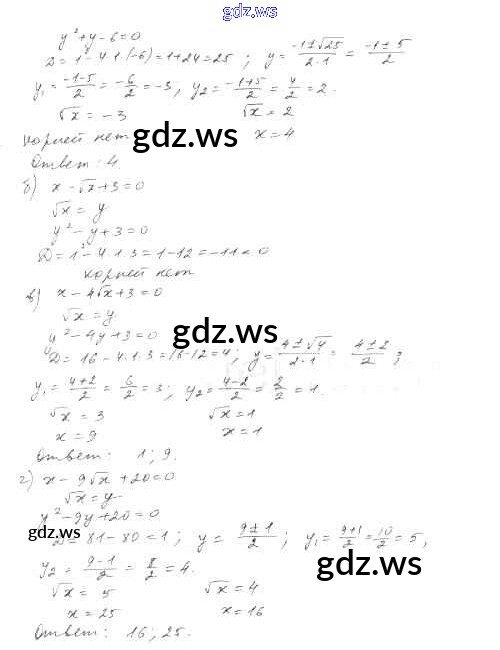 gdz.ws
y² + y - 6 = 0
D = 1² - 4·1·(-6) = 1 + 24 = 25 ; y = (-1 ± √25)/(2·1) = (-1 ± 5)/2
y₁ = (-1-5)/2 = -6/2 = -3, y₂ = (-1+5)/2 = 4/2 = 2.
√x = -3 √x = 2
корней нет x = 4
gdz.ws
Ответ: 4.
б) x - √x + 3 = 0
√x = y
y² - y + 3 = 0
D = 1² - 4·1·3 = 1 - 12 = -11 < 0
корней нет
в) x - 4√x + 3 = 0
√x = y
gdz.ws
y² - 4y + 3 = 0
D = 16 - 4·1·3 = 16 - 12 = 4; y = (4 ± √4)/(2·1) = (4 ± 2)/2 ;
y₁ = (4+2)/2 = 6/2 = 3; y₂ = (4-2)/2 = 2/2 = 1.
√x = 3 √x = 1
x = 9 x = 1
Ответ: 1; 9.
г) x - 9√x + 20 = 0
√x = y
y² - 9y + 20 = 0
gdz.ws
D = 81 - 80 = 1; y = (9 ± 1)/2 ; y₁ = (9+1)/2 = 10/2 = 5,
y₂ = (9-1)/2 = 8/2 = 4.
gdz.ws
√x = 5 √x = 4
x = 25 x = 16
Ответ: 16; 25.
gdz.ws